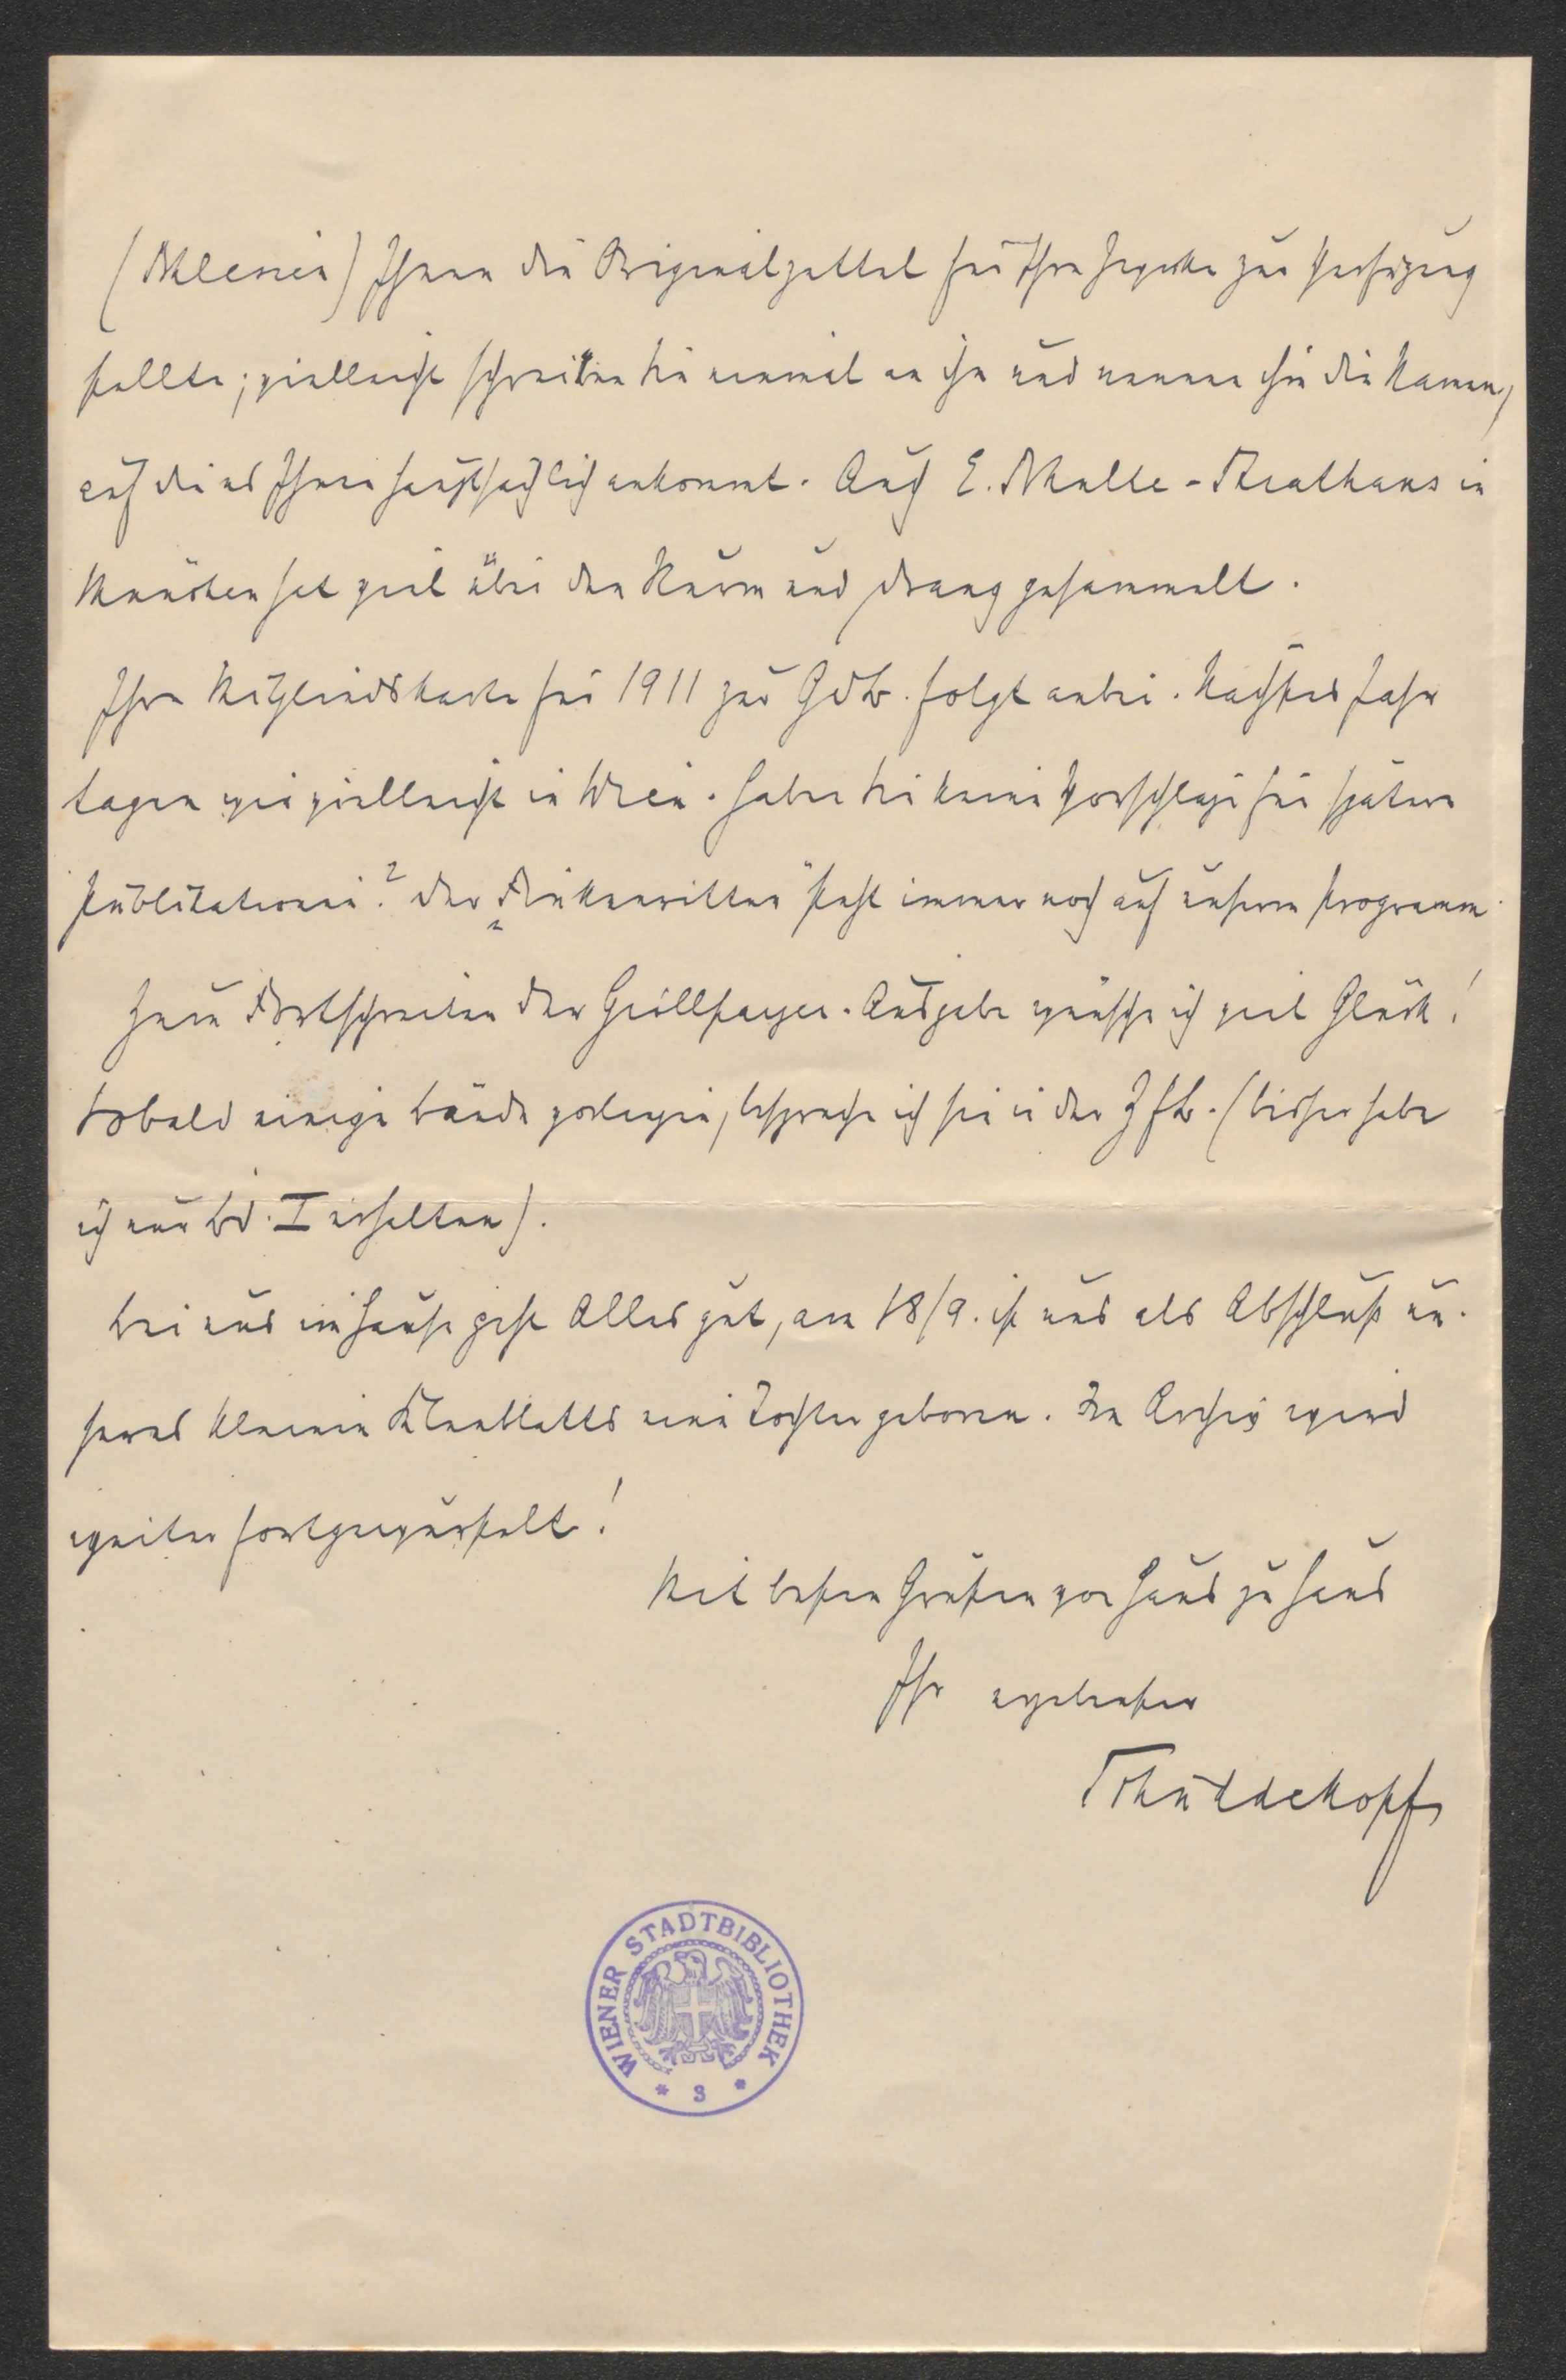 (Allein) Ihnen die Originalzettel für Ihre Zwecke zur Verfügung
stellte; vielleicht schreiben Sie einmal an ihn und nennen ihm die Namen,
auf die es Ihnen hauptsächlich ankommt. Auch E. Schulte-Strathaus in
München hat viel über den Sturm und Drang gesammelt.
Ihre Mitgliedskarte für 1911 zur GdB. folgt anbei. Nächstes Jahr
tagen wir vielleicht in Wien. Haben Sie keine Vorschläge für spätere
Publikationen? Der „Finkenritter" steht immer noch auf unserm Programm.
Zum Fortschreiten der Grillparzer-Ausgabe wünsche ich viel Glück!
Sobald einige Bände vorliegen, bespreche ich sie in der ZfB. (bisher habe
ich nur Bd. I erhalten).
Bei uns im Hause geht Alles gut, am 18/9. ist uns als Abschluß un-
seres kleinen Kleeblatts eine Tochter geboren. Im Archiv wird
weiter fortgewurstelt!
Mit besten Grüßen von Haus zu Haus
Ihr ergebenster
Schüddekopf
WIENER STADTBIBLIOTHEK
* 3 *